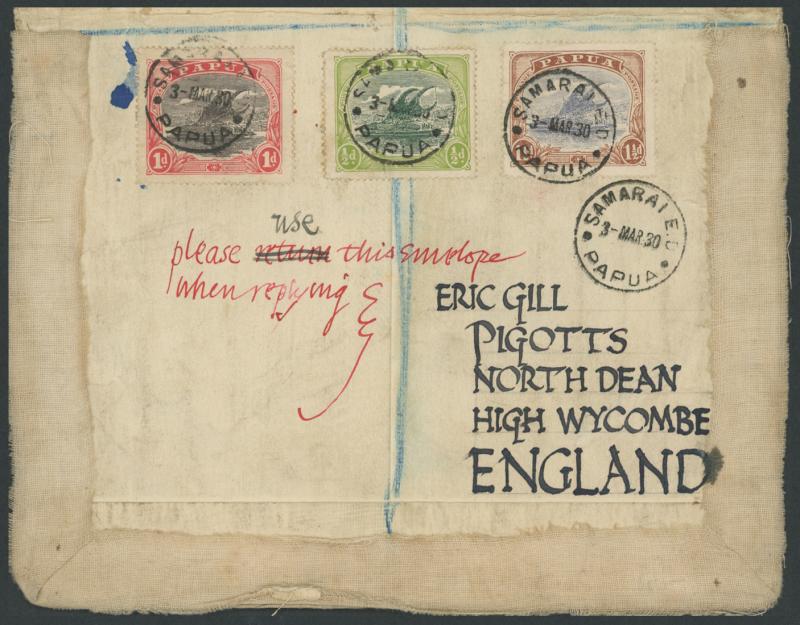 PAPUA
1d
SAMARAI
3-MAR.30
PAPUA
PAPUA
½d ½d
3-MAR.30
PAPUA
PAPUA
1½d
SAMARAI E.D
3-MAR.30
PAPUA
SAMARAI E.D
3-MAR.30
PAPUA
use
please return this envelope
when replying
ERIC GILL
PIGOTTS
NORTH DEAN
HIGH WYCOMBE
ENGLAND